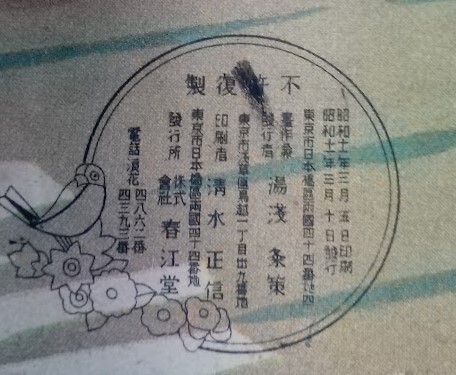 不許復製
昭和十一年三月五日印刷
昭和十一年三月十日發行
東京市日本橋區兩國四十四番地四
著作兼
發行者
湯淺粂策
東京市淺草區鳥越一丁目廿九番地
印刷者 清水正信
東京市日本橋區兩國四十四番地
發行所
株式
會社
春江堂
電話浪花
四八六二番
四三九三番